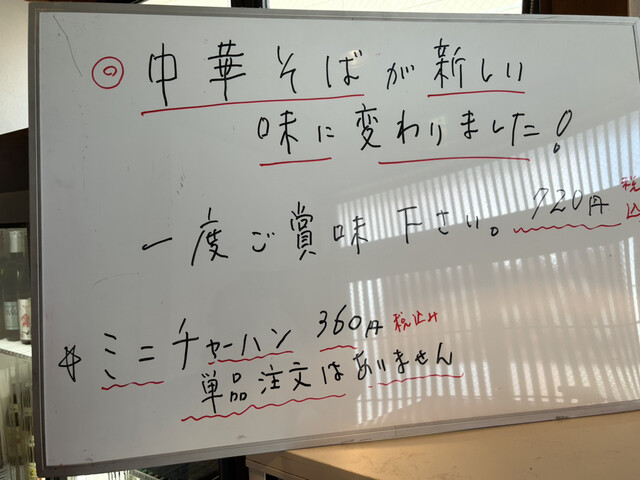 ◎中華そばが新しい
味に変わりました!
一度ご賞味下さい。720円税込
※ミニチャーハン 360円税込み
単品注文はありません